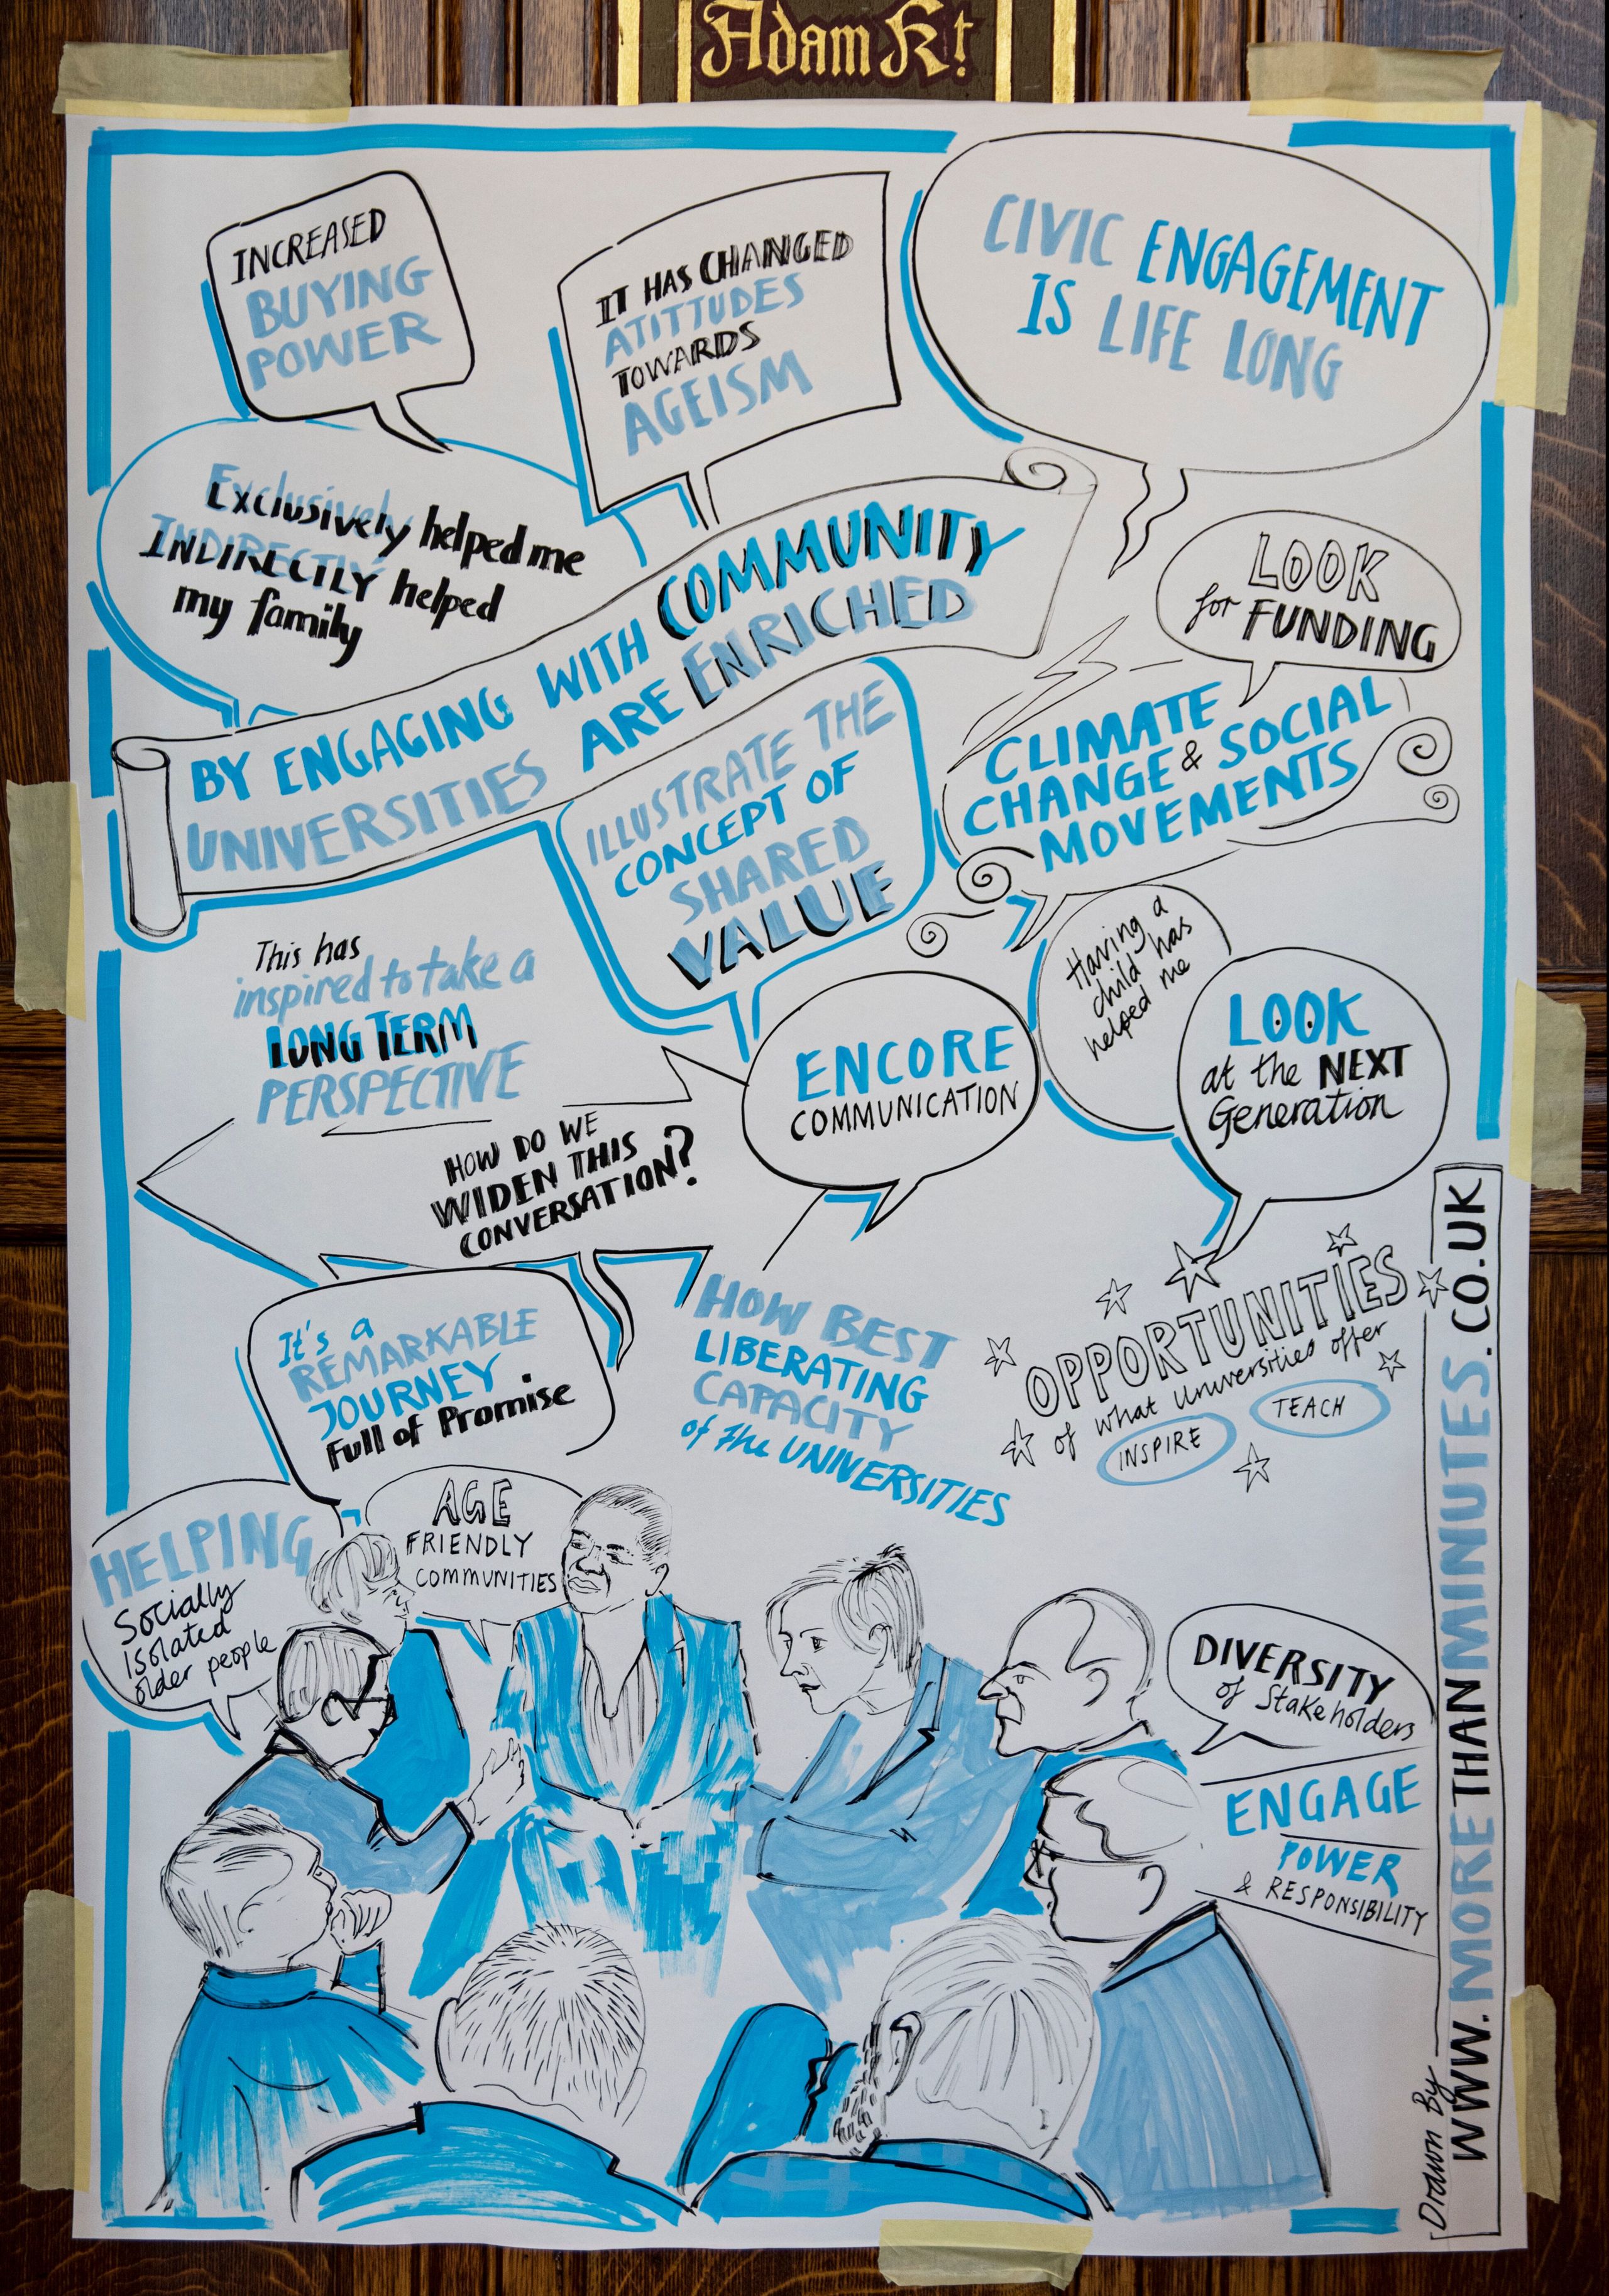 Adam Kt.
INCREASED
BUYING
POWER
IT HAS CHANGED
ATITTUDES
TOWARDS
AGEISM
CIVIC ENGAGEMENT
IS LIFE LONG
Exclusively helped me
INDIRECTLY helped
my family
LOOK
for FUNDING
BY ENGAGING WITH COMMUNITY
UNIVERSITIES ARE ENRICHED
ILLUSTRATE THE
CONCEPT OF
SHARED
VALUE
CLIMATE
CHANGE & SOCIAL
MOVEMENTS
This has
inspired to take a
LONG TERM
PERSPECTIVE
Having a
child has
helped me
LOOK
at the NEXT
Generation
ENCORE
COMMUNICATION
HOW DO WE
WIDEN THIS
CONVERSATION?
It's a
REMARKABLE
JOURNEY
Full of Promise
HOW BEST
LIBERATING
CAPACITY
of the UNIVERSITIES
OPPORTUNITIES
of what Universities offer
INSPIRE
TEACH
HELPING
Socially
Isolated
older people
AGE
FRIENDLY
COMMUNITIES
DIVERSITY
of Stakeholders
ENGAGE
POWER
& RESPONSIBILITY
Drawn By
WWW.MORETHANMINUTES.CO.UK